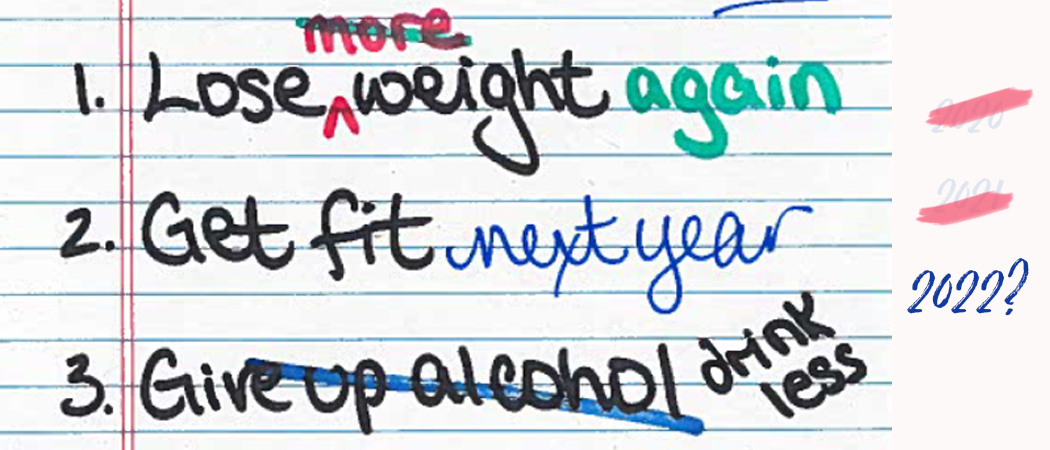 more
1. Lose ^ weight again
2. Get fit next year
3. Give up alcohol drink less
2020
2021
2022?